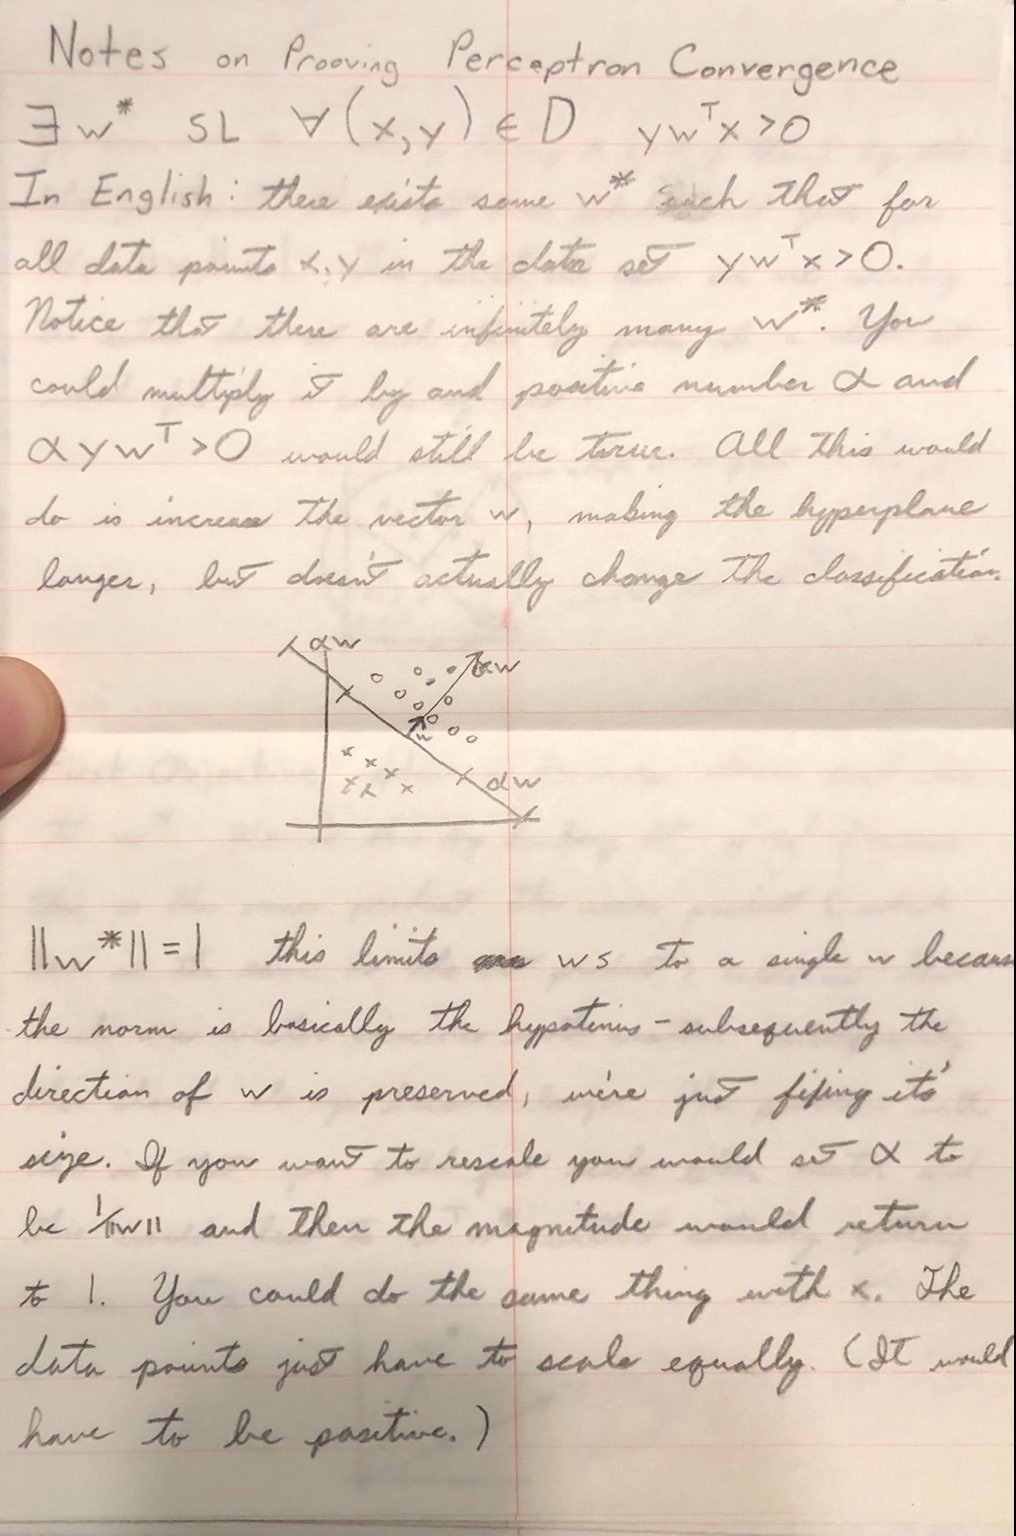 Notes on Prooving Perceptron Convergence
∃ w* SL ∀(x,y) ∈ D ywᵀx >0
In English: there exists some w* such that for
all data points x,y in the data set ywᵀx>0.
Notice that there are infinitely many w*. You
could multiply it by and positive number α and
αywᵀ>0 would still be true. All this would
do is increase the vector w, making the hyperplane
longer, but doesn't actually change the classification.
αw
αw
w
αw
||w*||=1 this limits ws to a single w because
the norm is basically the hypotinus - subsequently the
direction of w is preserved, we're just fifing its'
size. If you want to rescale you would set α to
be 1/||w|| and then the magnitude would return
to 1. You could do the same thing with x. The
data points just have to scale equally. (It would
have to be positive.)